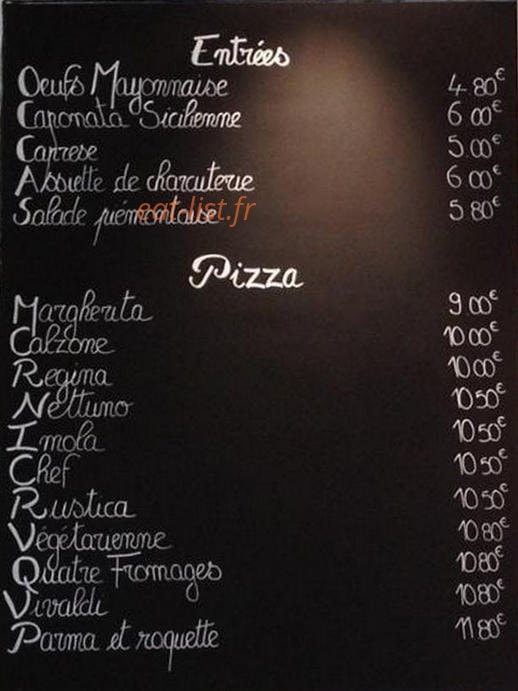 Entrées
Oeufs Mayonnaise 4.80€
Caponata Sicilienne 6.00€
Caprese 5.00€
Assiette de charcuterie 6.00€
Salade piémontaise 5.80€
eat-list.fr
Pizza
Margherita 9.00€
Calzone 10.00€
Regina 10.00€
Nettuno 10.50€
Imola 10.50€
Chef 10.50€
Rustica 10.50€
Végétarienne 10.80€
Quatre Fromages 10.80€
Vivaldi 10.80€
Parma et roquette 11.80€